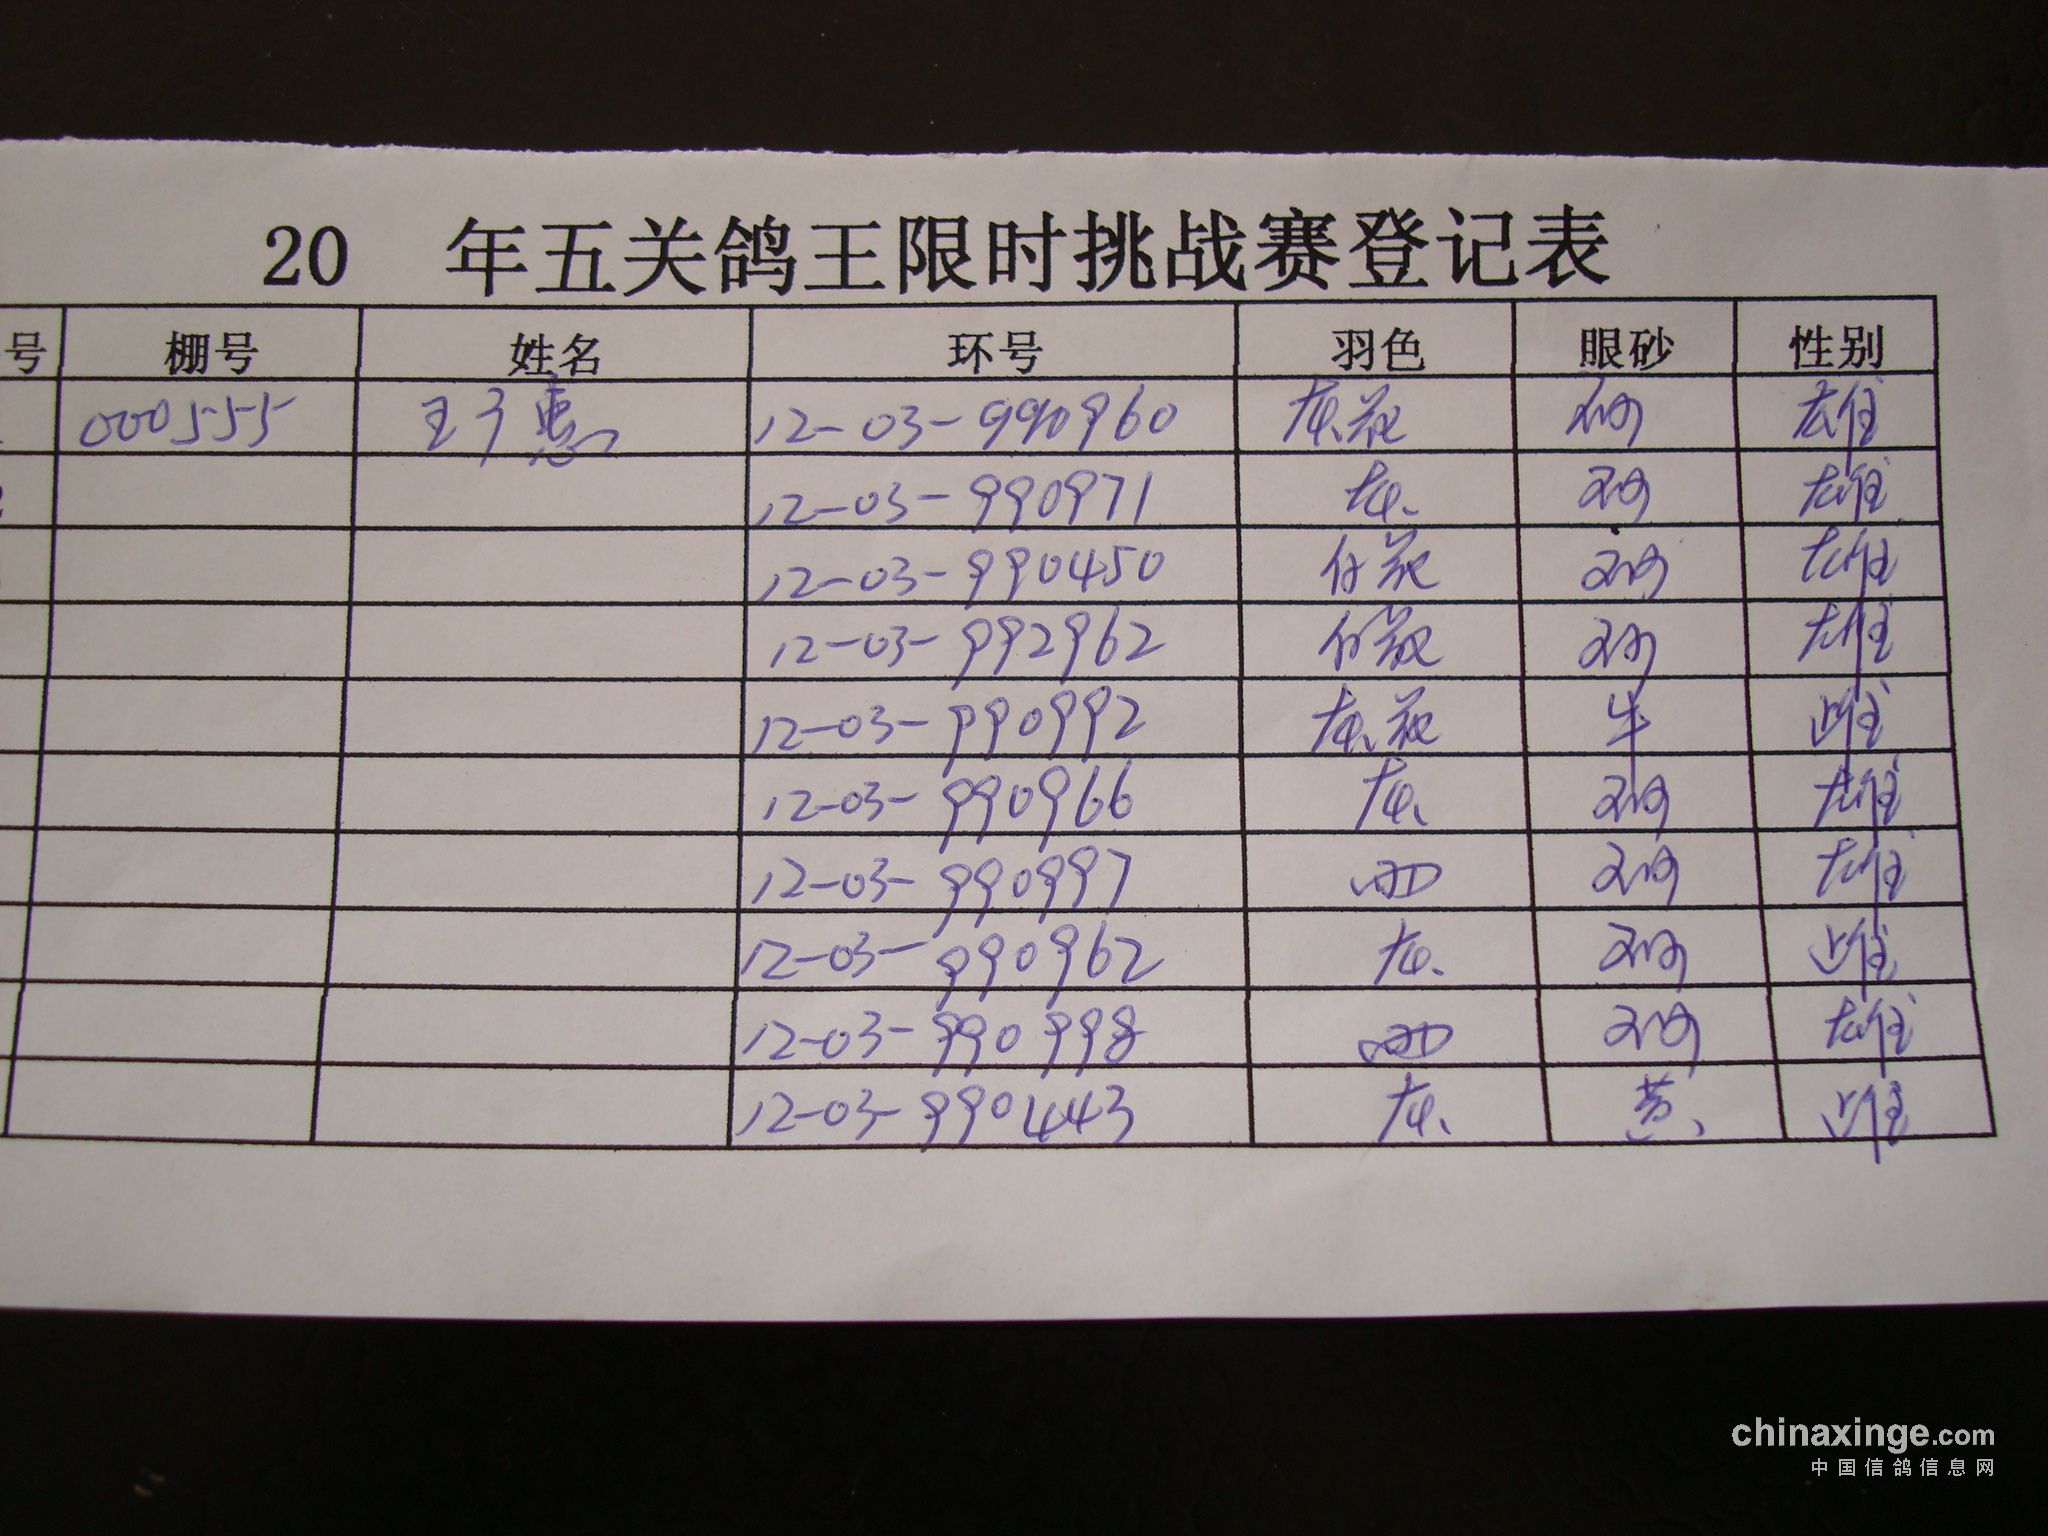 20 年五关鸽王限时挑战赛登记表
号 棚号 姓名 环号 羽色 眼砂 性别
000555 王子惠 12-03-990960 砂 雄
12-03-990971 砂 雄
12-03-990450 砂 雄
12-03-992962 砂 雄
12-03-990992 牛 雄
12-03-990966 砂 雄
12-03-990997 砂 雄
12-03-990962 砂 雄
12-03-990998 砂 雄
12-03-990443 黄 雄
chinaxinge.com
中国信鸽信息网